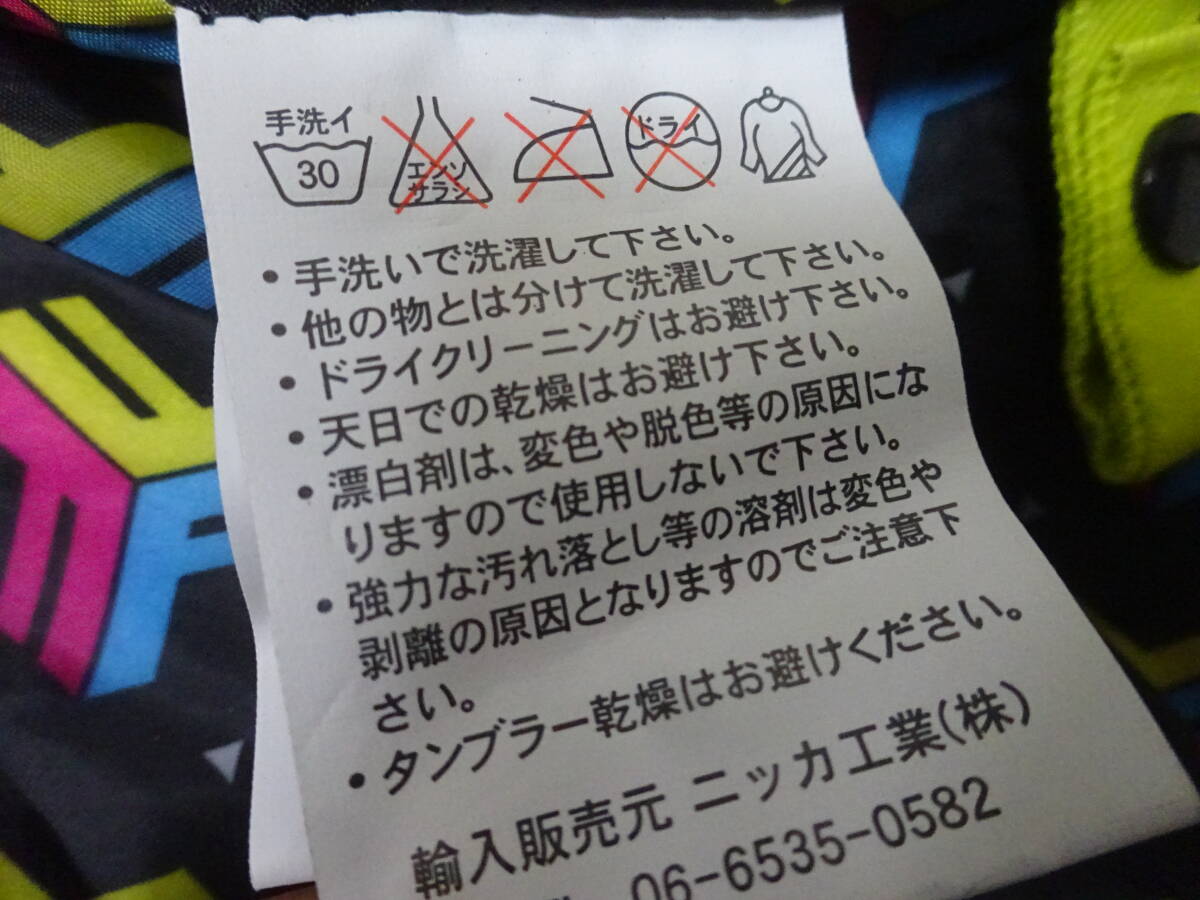 手洗イ
30
エンソ
サラシ
ドライ
・手洗いで洗濯して下さい。
・他の物とは分けて洗濯して下さい。
・ドライクリーニングはお避け下さい。
・天日での乾燥はお避け下さい。
・漂白剤は、変色や脱色等の原因にな
りますので使用しないで下さい。
・強力な汚れ落とし等の溶剤は変色や
剥離の原因となりますのでご注意下
さい。
・タンブラー乾燥はお避けください。
輸入販売元 ニッカ工業(株)
06-6535-0582